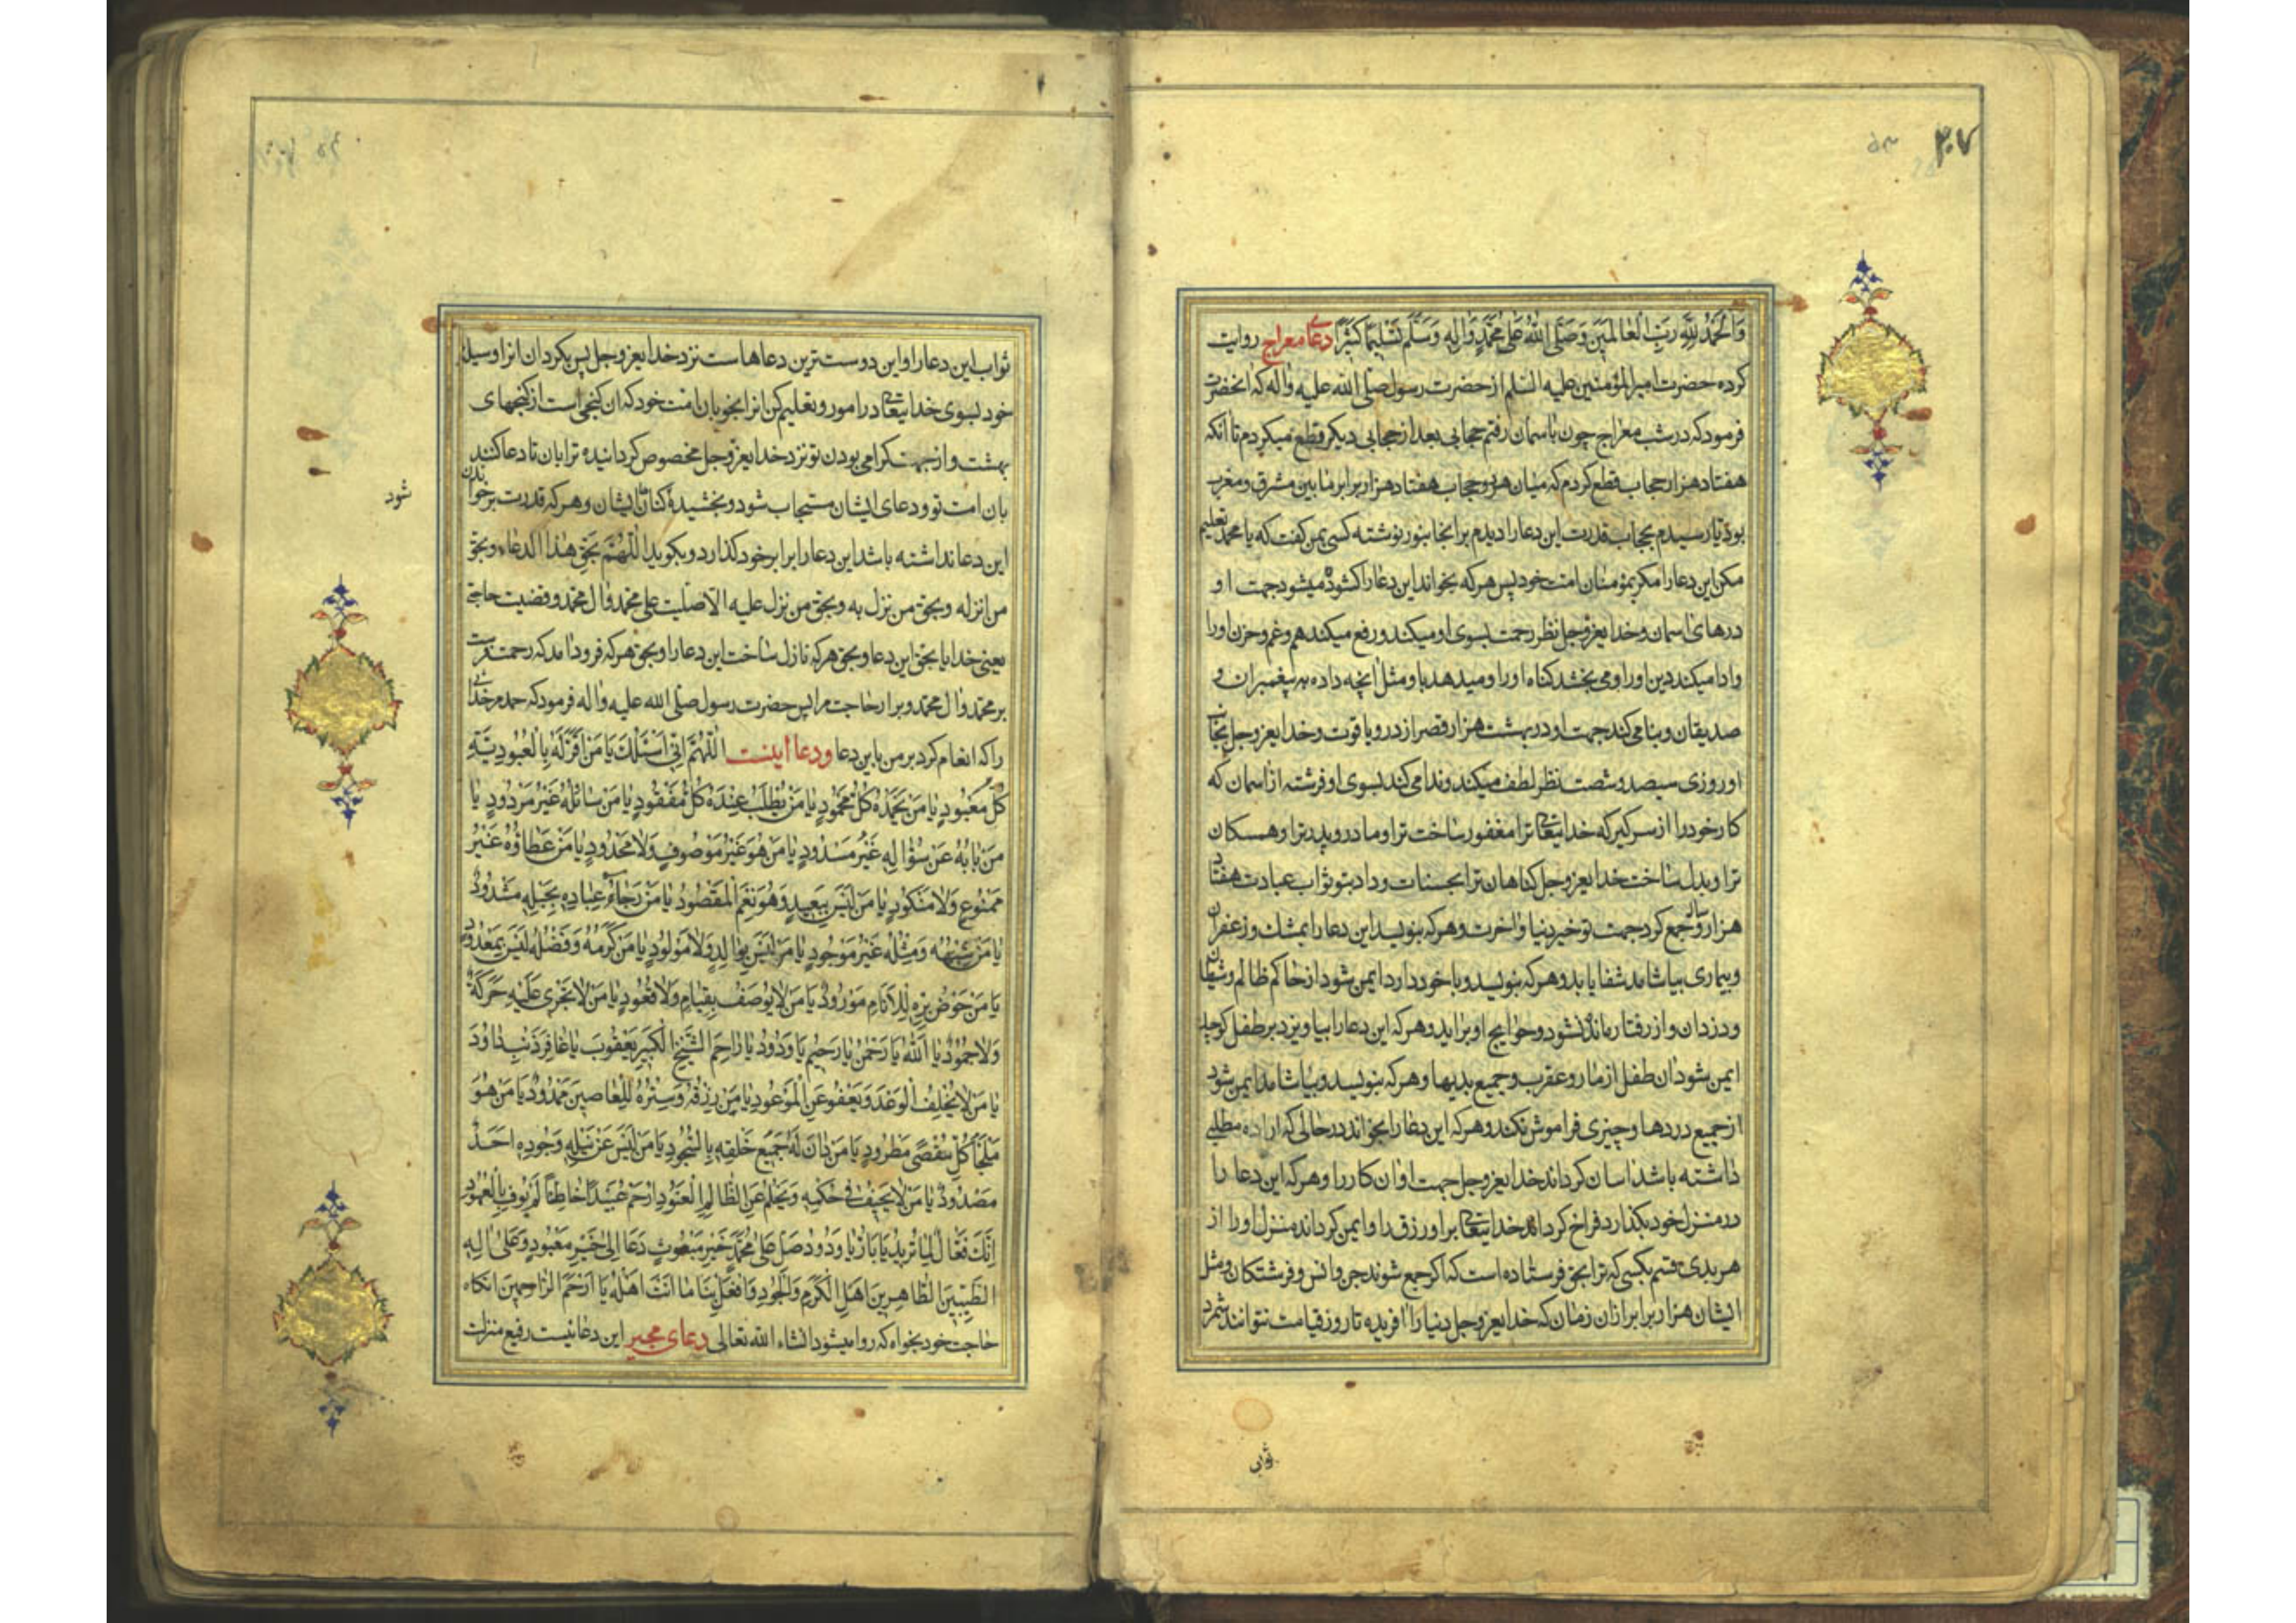 ۳۰۷
وَالْحَمْدُ لِلَّهِ رَبِّ الْعَالَمِينَ وَصَلَّى اللَّهُ عَلَى مُحَمَّدٍ وَآلِهِ وَسَلَّمَ تَسْلِيمًا كَثِيرًا دعای معراج روایت
کرده حضرت امیرالمؤمنین علیه السلم از حضرت رسول صلی الله علیه واله که انحضرت
فرمود که در شب معراج چون باسمان رفتم حجابی بعد از حجابی دیکر قطع میکردم تا انکه
هفتاد هزار حجاب قطع کردم که میان هر دو حجاب هفتاد هزار برابر مابین مشرق و مغرب
بود تا رسیدم بحجاب قدرت این دعا را دیدم بر انجا بنور نوشته کسی بمن کفت که یا محمد تعلیم
مکن این دعا را مکر بمؤمنان امت خود پس هر که بخواند این دعا را کشوده میشود جهت او
درهای اسمان و خدایعزوجل نظر رحمت بسوی او میکند و رفع میکند هم و غم و حزن او را
و ادا میکند دین او را و می بخشد کناه او را و میدهد باو مثل انچه داده به پیغمبران و
صدیقان و بنا می کند جهت او در بهشت هزار قصر از در و یاقوت و خدایعزوجل بجانب
او روزی سیصد و شصت نظر لطف میکند و ندا می کند بسوی او فرشته از اسمان که
کار خود را از سر کیر که خدایتعالی ترا مغفور ساخت ترا و مادر و پدر ترا و همسکان
ترا و بدل ساخت خدایعزوجل کناهان ترا بحسنات و داد بتو ثواب عبادت هفتاد
هزار سال و جمع کرد جهت تو خیر دنیا و اخرت و هر که بنویسد این دعا را بمشك و زعفران
و بیماری بیاشامد شفا یابد و هر که بنویسد و با خود دارد ایمن شود از حاکم ظالم و شیطان
و دزدان و از رفتار مانده نشود و حوایج او براید و هر که این دعا را بیاویزد بر طفل کوچك
ایمن شود ان طفل از مار و عقرب و جمیع بدیها و هر که بنویسد و بیاشامد ایمن شود
از جمیع دردها و چیزی فراموش نکند و هر که این دعا را بخواند در حالی که اراده مطلبی
داشته باشد اسان کرداند خدایعزوجل جهت او ان کار را و هر که این دعا را
در منزل خود بکذارد فراخ کرداند خدایتعالی بر او رزق را و ایمن کرداند منزل او را از
هر بدی قسم بکسی که ترا بحق فرستاده است که اکر جمع شوند جن و انس و فرشتکان و مثل
ایشان هزار برابر از ان زمان که خدایعزوجل دنیا را افریده تا روز قیامت نتوانند شمرد
ثواب
ثواب این دعا را و این دوست ترین دعاهاست نزد خدایعزوجل پس بکردان انرا وسیله
خود بسوی خدایتعالی در امور و تعلیم کن انرا بخوبان امت خود که ان کنجی است از کنجهای
بهشت و از جهت کرامی بودن تو نزد خدایعزوجل مخصوص کردانیده ترا بان تا دعا کنند
بان امت تو و دعای ایشان مستجاب شود و بخشیده کناه ایشان و هر که قدرت بر خواندن
شود
این دعا نداشته باشد این دعا را برابر خود کذارد و بکوید اللهُمَّ بحق هذا الدعاء و بحق
من انزله و بحق من نزل به و بحق من نزل علیه الا صلیت علی محمد و ال محمد و قضیت حاجتی
یعنی خدایا بحق این دعا و بحق هر که نازل ساخت این دعا را و بحق هر که فرود امد که رحمت فرست
بر محمد و ال محمد و برار حاجت مرا پس حضرت رسول صلی الله علیه واله فرمود که حمد مر خدای
را که انعام کرد بر من باین دعا و دعا اینست اَللّٰهُمَّ اِنّى اَسْئَلُكَ يَا مَنْ اَقَرَّ لَهُ بِالْعُبُودِيَّةِ
كُلُّ مَعْبُودٍ يَا مَنْ يَحْمَدُهُ كُلُّ مَحْمُودٍ يَا مَنْ يُطْلَبُ عِنْدَهُ كُلُّ مَفْقُودٍ يَا مَنْ سَائِلُهُ غَيْرُ مَرْدُودٍ يَا
مَنْ بَابُهُ عَنْ سُؤَالِهِ غَيْرُ مَسْدُودٍ يَا مَنْ هُوَ غَيْرُ مَوْصُوفٍ وَلَا مَحْدُودٍ يَا مَنْ عَطَاؤُهُ غَيْرُ
مَمْنُوعٍ وَلَا مَنْكُودٍ يَا مَنْ لَيْسَ بِبَعِيدٍ وَهُوَ نِعْمَ الْمَقْصُودُ يَا مَنْ رَجَاءُ عِبَادِهِ بِحَبْلِهِ مَشْدُودٌ
يَا مَنْ شِبْهُهُ وَمِثْلُهُ غَيْرُ مَوْجُودٍ يَا مَنْ لَيْسَ بِوَالِدٍ وَلَا مَوْلُودٍ يَا مَنْ كَرَمُهُ وَفَضْلُهُ لَيْسَ بِمَعْدُودٍ
يَا مَنْ حَوْضُ بِرِّهِ لِلْاَنَامِ مَوْرُودٌ يَا مَنْ لَا يُوصَفُ بِقِيَامٍ وَلَا قُعُودٍ يَا مَنْ لَا تَجْرِى عَلَيْهِ حَرَكَةٌ
وَلَا جُمُودٌ يَا اَللّٰهُ يَا رَحْمٰنُ يَا رَحِيمُ يَا وَدُودُ يَا رَاحِمَ الشَّيْخِ الْكَبِيرِ يَعْقُوبَ يَا غَافِرَ ذَنْبِ دَاوُدَ
يَا مَنْ لَا يُخْلِفُ الْوَعْدَ وَيَعْفُو عَنِ الْمَوْعُودِ يَا مَنْ رِزْقُهُ وَسِتْرُهُ لِلْعَاصِينَ مَمْدُودٌ يَا مَنْ هُوَ
مَلْجَأُ كُلِّ مُقْصًى مَطْرُودٍ يَا مَنْ دَانَ لَهُ جَمِيعُ خَلْقِهِ بِالسُّجُودِ يَا مَنْ لَيْسَ عَنْ نَيْلِهِ وَجُودِهِ اَحَدٌ
مَصْدُودٌ يَا مَنْ لَا يَحِيفُ فِى حُكْمِهِ وَيَحْلُمُ عَنِ الظَّالِمِ الْعَنُودِ اِرْحَمْ عُبَيْدًا خَاطِئًا لَمْ يُوفِ بِالْعُهُودِ
اِنَّكَ فَعَّالٌ لِمَا تُرِيدُ يَا بَارُّ يَا وَدُودُ صَلِّ عَلَى مُحَمَّدٍ خَيْرِ مَبْعُوثٍ دَعَا اِلَى خَيْرِ مَعْبُودٍ وَعَلَى الِهِ
الطَّيِّبِينَ الطَّاهِرِينَ اَهْلِ الْكَرَمِ وَالْجُودِ وَافْعَلْ بِنَا مَا اَنْتَ اَهْلُهُ يَا اَرْحَمَ الرَّاحِمِينَ انکاه
حاجت خود بخواه که روا میشود انشاء الله تعالی دعای مجیر این دعائیست رفیع منزلت